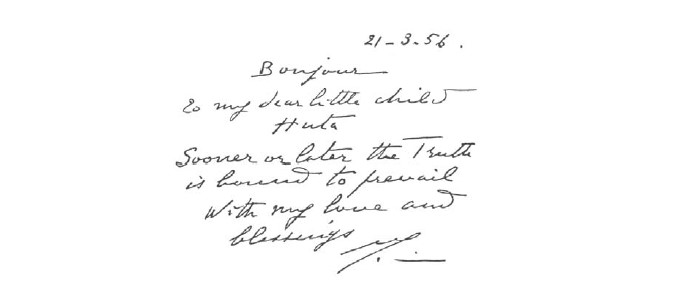 21-3-56.
Bonjour
to my dear little child
Huta
Sooner or later the Truth
is bound to prevail
With my love and
blessings